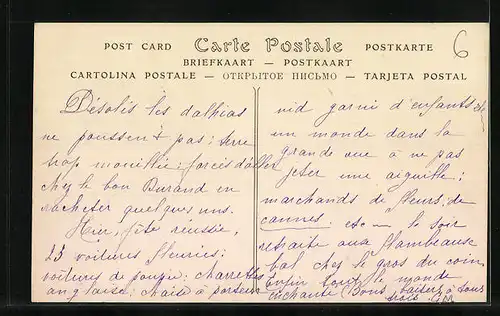 POST CARD Carte Postale POSTKARTE
BRIEFKAART — POSTKAART
CARTOLINA POSTALE — ОТКРЫТОЕ ПИСЬМО — TARJETA POSTAL
6
Désolés les dalhias
ne poussent pas; terre
trop mouillée; forcés d'aller
chez le bon Durand en
racheter quelques uns.
Hier, fête réussie,
25 voitures fleuries;
voitures de poupée; charrettes
anglaise; chaise à porteur
nid garni d'enfants etc
un monde dans la
grande rue à ne pas
jeter une aiguille;
marchands de fleurs, de
cannes. etc — le soir
retraite aux flambeaux
bal chez le gros du coin
enfin tout le monde
enchanté (Bons baisers à tous
trois. GM